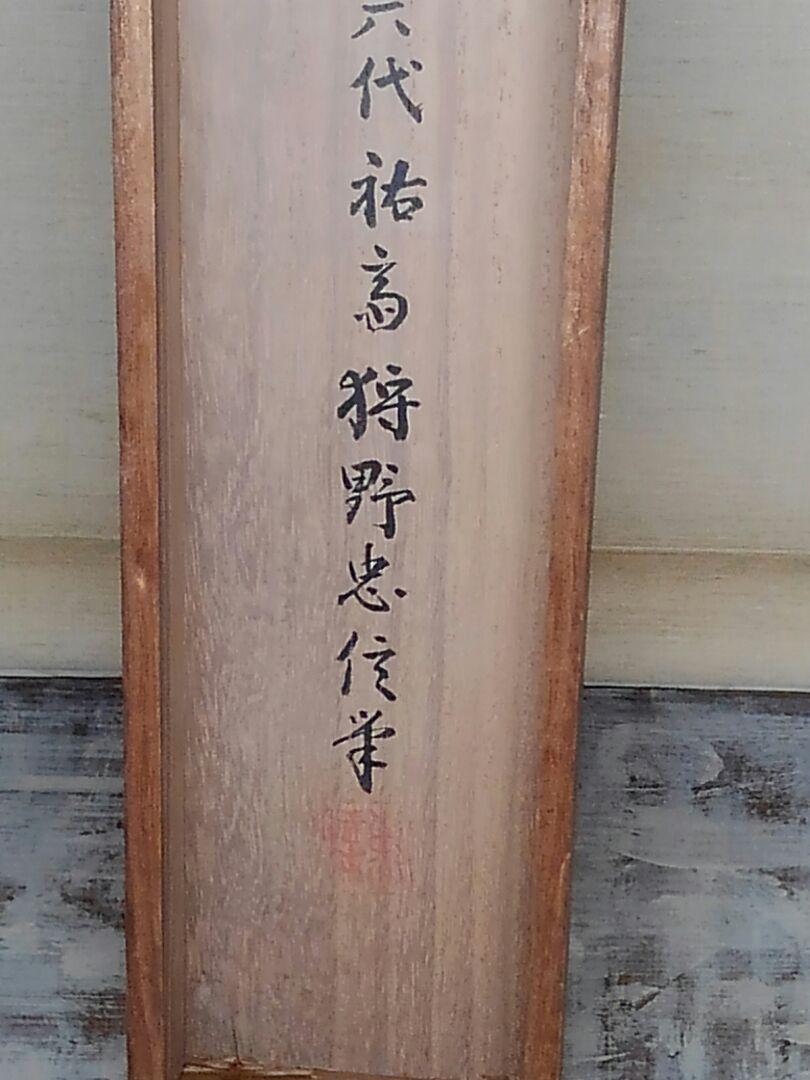 六代祐高狩野忠信筆